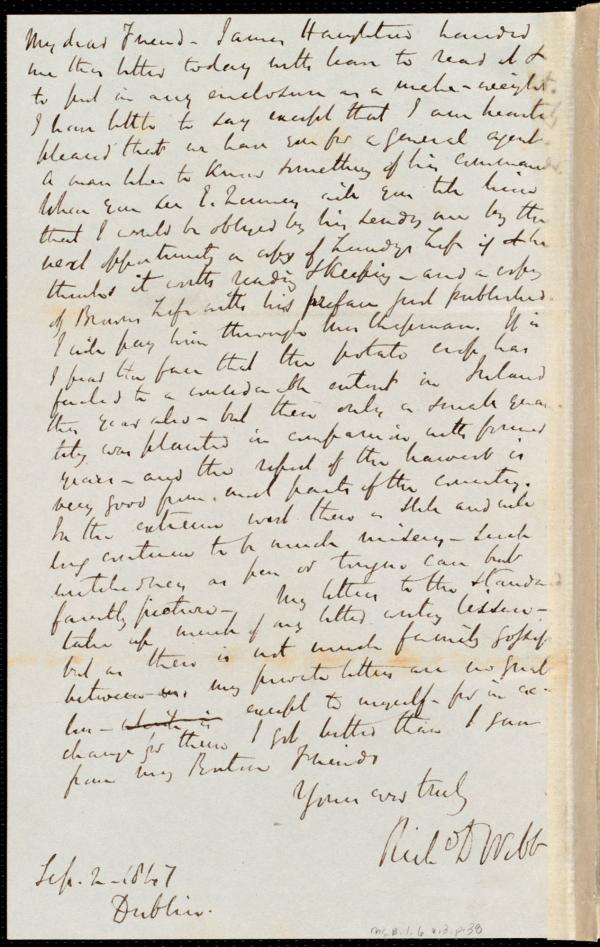 My dear Friend - James Haughton handed
me this letter today with leave to read it &
to put in any enclosure as a make-weight.
I have little to say except that I am heartily
pleased that we have you for a general agent.
A man likes to know something of his commander.
When you see E. Quincy will you tell him
that I would be obliged by his sending me by the
next opportunity a copy of Lundy's Life if he
thinks it worth reading & keeping - and a copy
of Brown's Life with his preface just published.
I will pay him through Miss Chapman. It is
I fear the fact that the potato crop has
failed to a considerable extent in Ireland
this year also - but then only a small quan-
tity was planted in comparison with former
years - and the report of the harvest is
very good from most parts of the country.
In the extreme west there is still and will
long continue to be much misery - such
wretchedness as pen or tongue can but
faintly picture - My letters to the Standard
take up much of my letter writing leisure -
but as there is not much family gossip
between us, my private letters are no great
loss - which is except to myself - for in ex-
change for them I got better than I gave
from my Boston Friends
Yours ever truly
Richd D Webb
Sep. 2 - 1847
Dublin.
Ms.B.1.6 v.2, p.38